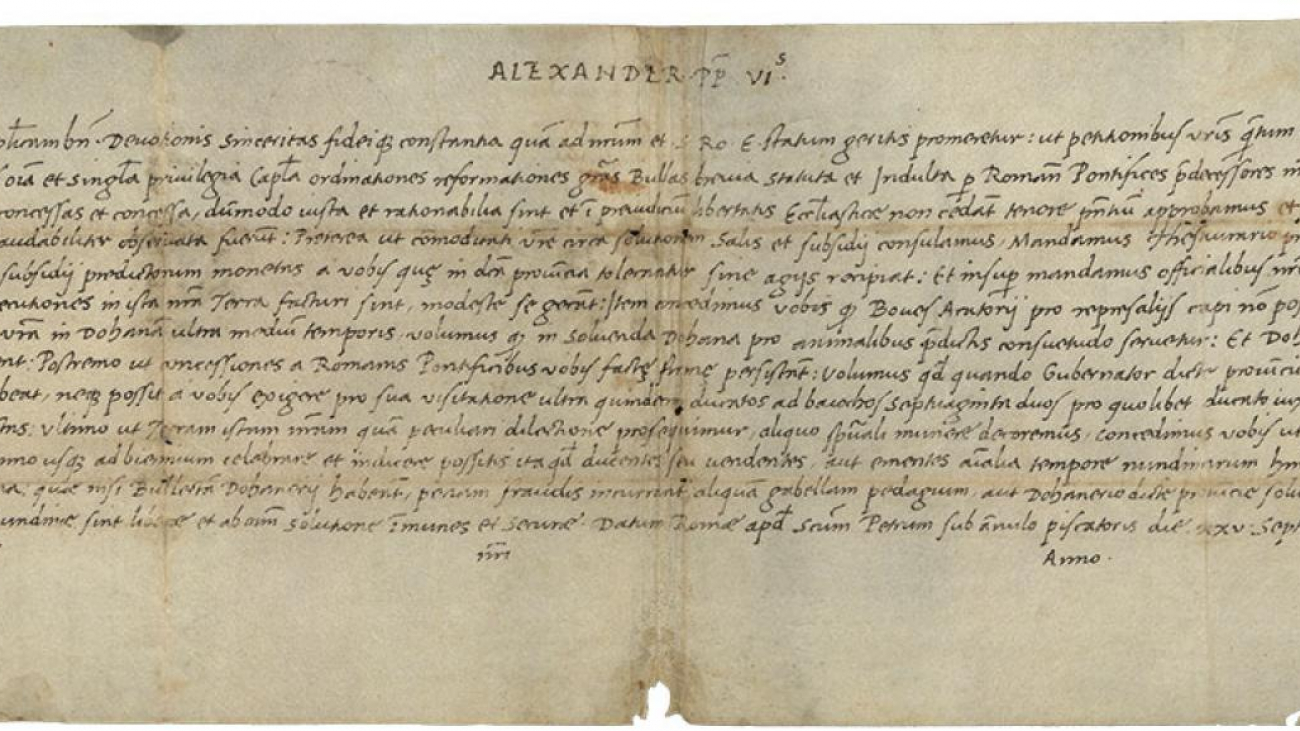 ALEXANDER PP̄ VIˢ.
bn̄. Devotionis sinceritas fideiqꝫ constantia quā ad nr̄um et S. Ro. E. statum geritis promeretur: ut petitionibus vr̄is q̄tum
oīa et singl̄a privilegia Capl̄a ordinationes reformationes gr̄as Bullas brevia statuta et Indulta p̱ Roman̄ Pontifices p̄decessores
concessas et concessa, dūmodo iusta et rationabilia sint et ī preiudiciū libertatis Eccl̄iasticæ non cedāt tenore pn̄tiū approbamus et
laudabiliter observata fuerūt: Preterea ut cōmoditati vr̄e circa solutionem Salis et subsidij consulamus, Mandamus Thesaurario
subsidij predictorum monetas a vobis quę in dc̄a provincia tolerantur sine agijs recipiat: Et insup̱ mandamus officialibus nr̄is
in ista nr̄a Terra facturi sint, modeste se gerāt: Item concedimus vobis qꝫ Boves Aratorij pro represalijs capi nō
vr̄a in Dohanā ultra mediū temporis, volumus qꝫ in solvenda Dohana pro animalibus p̄dictis consuetudo servetur: Et
Postremo ut concessiones a Romanis Pontificibus vobis factę firmę persistāt: Volumus qd̄ quando Gubernator dicte
neqꝫ possit a vobis exigere pro sua visitatione ultra quindecim ducatos ad baiochos septuaginta duos pro quolibet ducato
Ultimo ut Terram istam nr̄am quā peculiari dilectione prosequimur, aliquo sp̄uali munere decoremus, concedimus vobis ut
usqꝫ ad biennium celebrare et indicere possitis ita qd̄ ducentes seu vendentes, aut ementes aīalia tempore nundinarum
quæ nisi Bulletā Dohanerij habeāt, penam fraudis incurrāt aliquā gabellam pedagium, aut Dohanerio dicte provincie
sint liberæ et ab om̄i solutione īmunes et securæ. Datum Romæ apd̄ Scūm Petrum sub ānulo piscatoris die xxv.
nr̄i Anno.